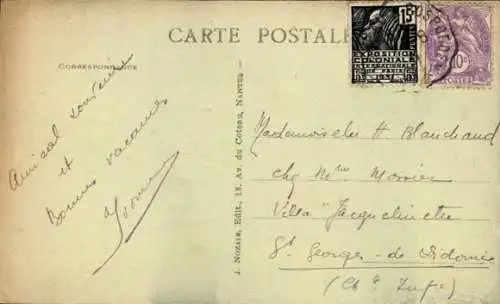 CARTE POSTALE
CORRESPONDANCE
Amical souvenir
et
Bonnes vacances
Yvonne
J. NOZAIS, Edit., 12, Av. du Coteau, NANTES
15c
POSTES
EXPOSITION
COLONIALE
INTERNATIONALE
DE PARIS
1931
10c
POSTES
Mademoiselle H. Blanchard
chz Mme
Villa Jacqueline
St Georges-de-Didonne
(Chte Infre)